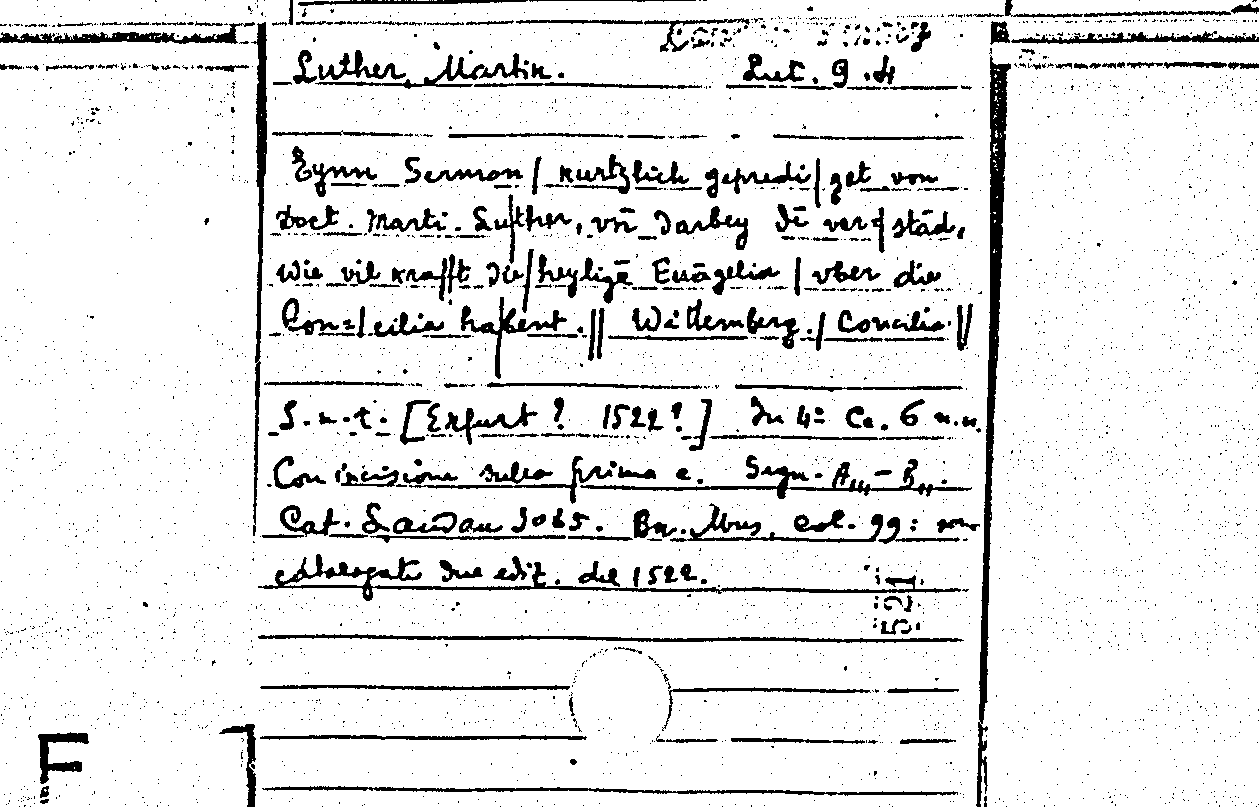 Luther, Martin. Lut. 9.4
Eynn Sermon / kurtzlich gepredi/get von
Doct. Marti. Luther, vñ Darbey dē ver=/stād,
wie vil krafft die/heylige Euāgelia / vber die
Con=/cilia habent. // Wittemberg. / Concilia. //
S.n.t. [Erfurt ? 1522 ?] In 4º Cc. 6 n.n.
Con incisione sulla prima c. Segn. A,,,-B,,.
Cat. Landau 3065. Br. Mus. col. 99: sono
catalogate due edit. del 1522.
521
F